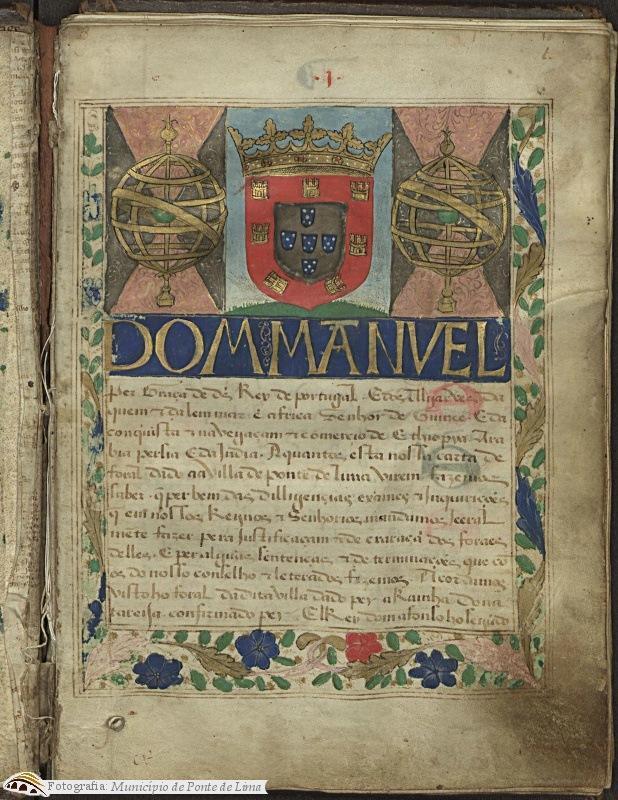 ·1·
DOM MANVEL
Per Graça de ds Rey de portugal . E dos Algarves da
quem & dalem mar e africa Senhor de Guinee . E da
conquista & navegaçam & comercio de Ethiopia Ara
bia persia E da India . A quantos esta nossa carta de
foral dado aa villa de ponte de lima virem fazemos
saber . q per bem das dilligençias exames & Inquirições
q em nossos Reynos & Senhorios mandamos geeral
mete fazer pera justificaçam & decraraçã dos foraes
delles . E per alguãs sentenças & determinações que co
os do nosso conselho & leterados fezemos Acordamos
visto ho foral da dita villa dado per a Rainha dona
tareija confirmado per El Rey dom afonso ho segũdo
Fotografia: Município de Ponte de Lima